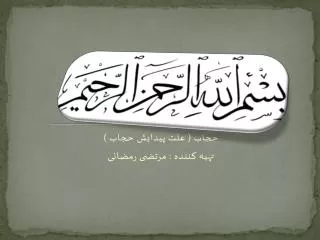 بِسْمِ اللهِ الرَّحْمٰنِ الرَّحِيمِ
حجاب ( علت پیدایش حجاب )
تهیه کننده : مرتضی رمضانی